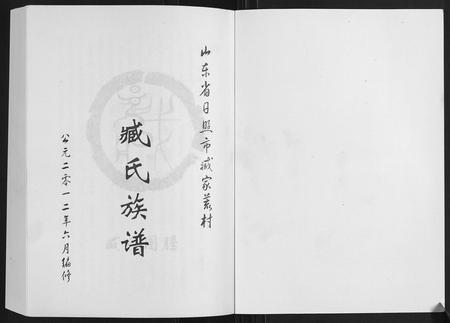 山东省日照市臧家荒村
臧氏族谱
公元二零一二年六月编修